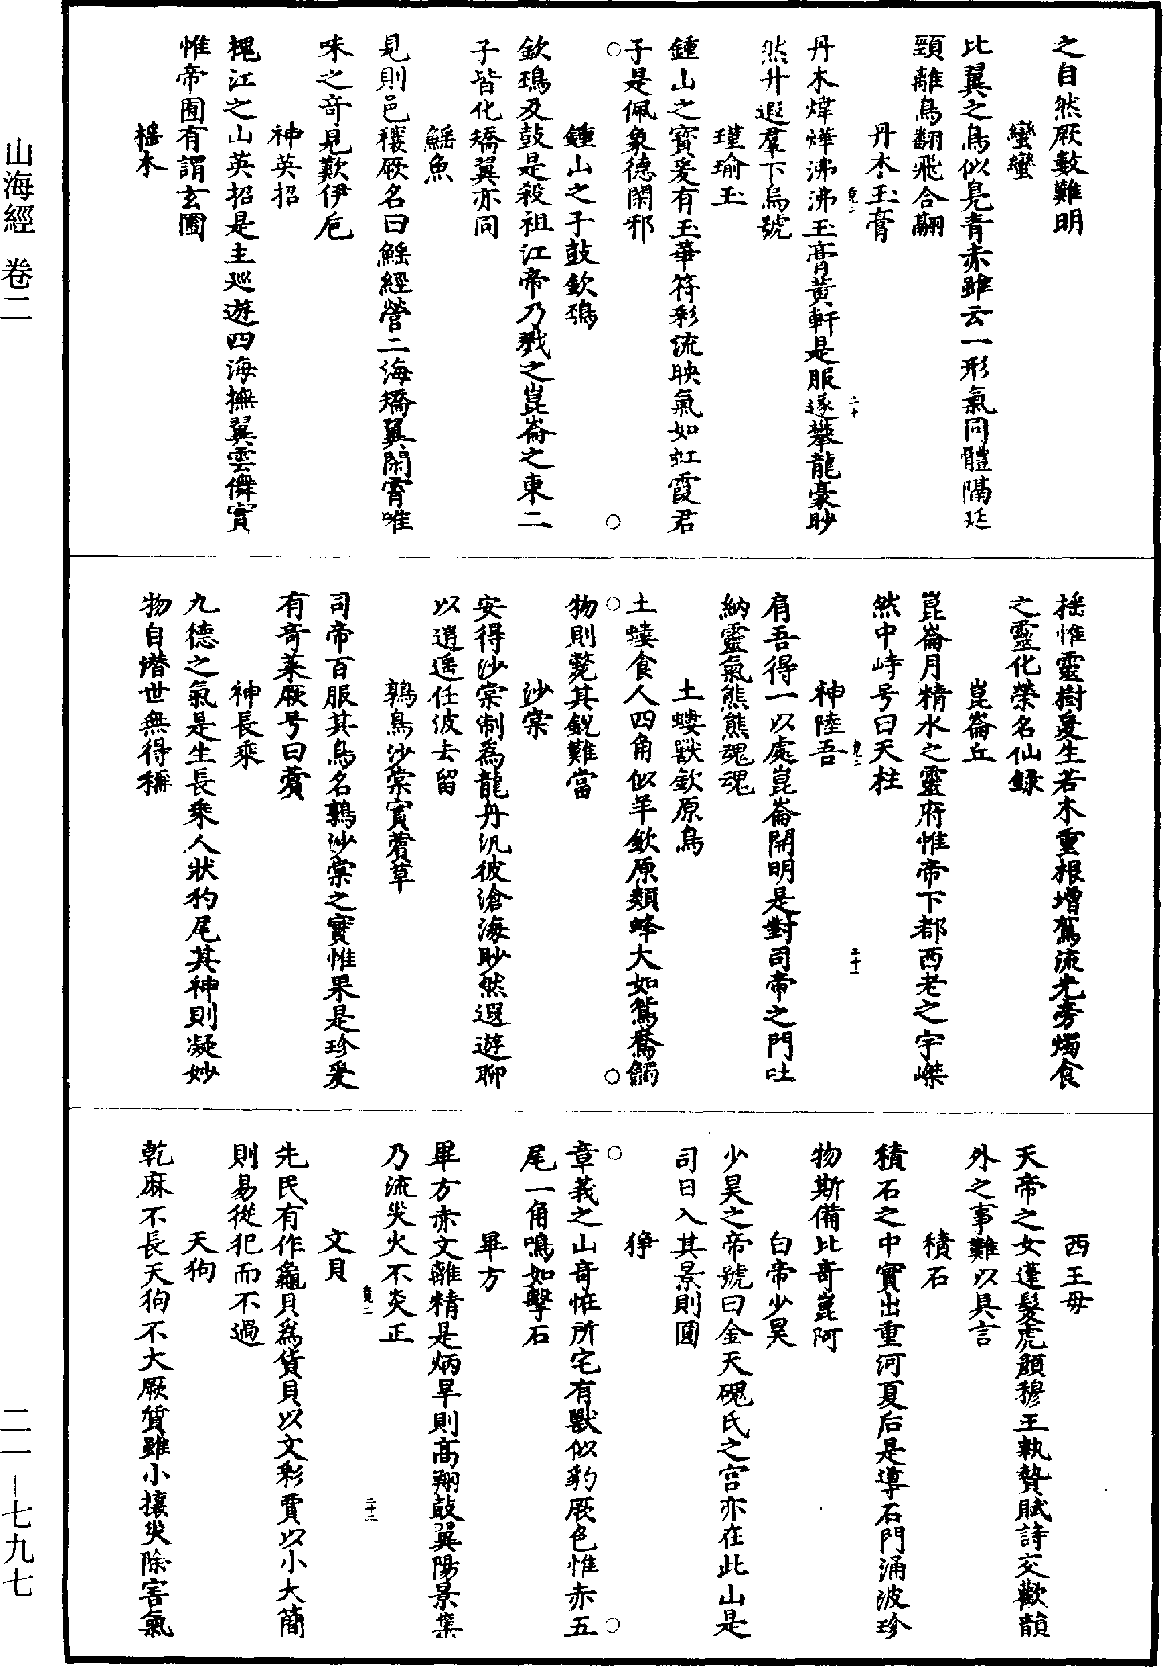 之自然厥數難明
蠻蠻
比翼之鳥似鳧青赤雖云一形氣同體隔延
頸離鳥翻飛合翮
丹木玉膏
丹木煒燁沸沸玉膏黃軒是服遂攀龍豪眇
然升遐羣下烏號
瑾瑜玉
鍾山之寶爰有玉華符彩流映氣如虹霞君
子是佩象德閑邪
鍾山之子鼓欽䲹
欽䲹及鼓是殺祖江帝乃戮之崑崙之東二
子皆化矯翼亦同
鰩魚
見則邑穰厥名曰鰩經營二海矯翼閑霄唯
味之奇見歎伊庖
神英招
槐江之山英招是主巡遊四海撫翼雲儛實
惟帝囿有謂玄圃
榣木
榣惟靈樹爰生若木重根增駕流光旁燭食
之靈化榮名仙録
崑崙丘
崑崙月精水之靈府惟帝下都西老之宇嶸
然中峙号曰天柱
神陸吾
肩吾得一以處崑崙開明是對司帝之門吐
納靈氣熊熊魂魂
土螻獸欽原鳥
土螻食人四角似羊欽原類蜂大如鴛鴦觸
物則斃其銳難當
沙棠
安得沙棠制為龍舟汎彼滄海眇然遐遊聊
以逍遙任彼去留
鶉鳥沙棠實薲草
司帝百服其鳥名鶉沙棠之實惟果是珍爰
有奇菜厥号曰薲
神長乘
九德之氣是生長乘人狀犳尾其神則凝妙
物自潛世無得稱
西王母
天帝之女蓬髮虎顏穆王執贄賦詩交歡韻
外之事難以具言
積石
積石之中實出重河夏后是導石門涌波珍
物斯備比奇崑阿
白帝少昊
少昊之帝號曰金天磈氏之宮亦在此山是
司日入其景則圓
猙
章莪之山奇怪所宅有獸似豹厥色惟赤五
尾一角鳴如擊石
畢方
畢方赤文離精是炳旱則高翔鼓翼陽景集
乃流災火不炎正
文貝
先民有作龜貝為貨貝以文彩賈以小大簡
則易從犯而不過
天狗
乾麻不長天狗不大厥質雖小攘災除害氣
山海經 卷二
二一—七九七